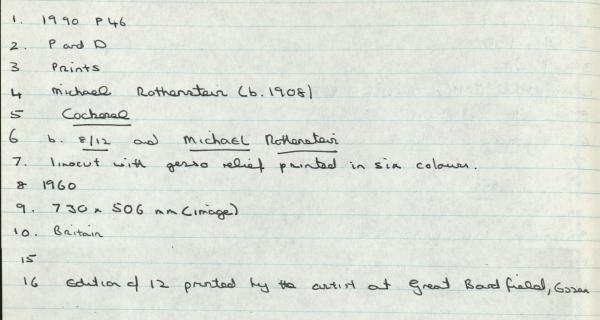 1. 1990 P46
2. P and D
3 Prints
4 Michael Rothenstein (b. 1908)
5 Cockerel
6 b. 8/12 and MICHAEL Rothenstein
7. linocut with gesso relief printed in six colours.
8 1960
9. 730 x 506 mm (image)
10. Britain
15
16 Edition of 12 printed by the artist at Great Bardfield, Essex